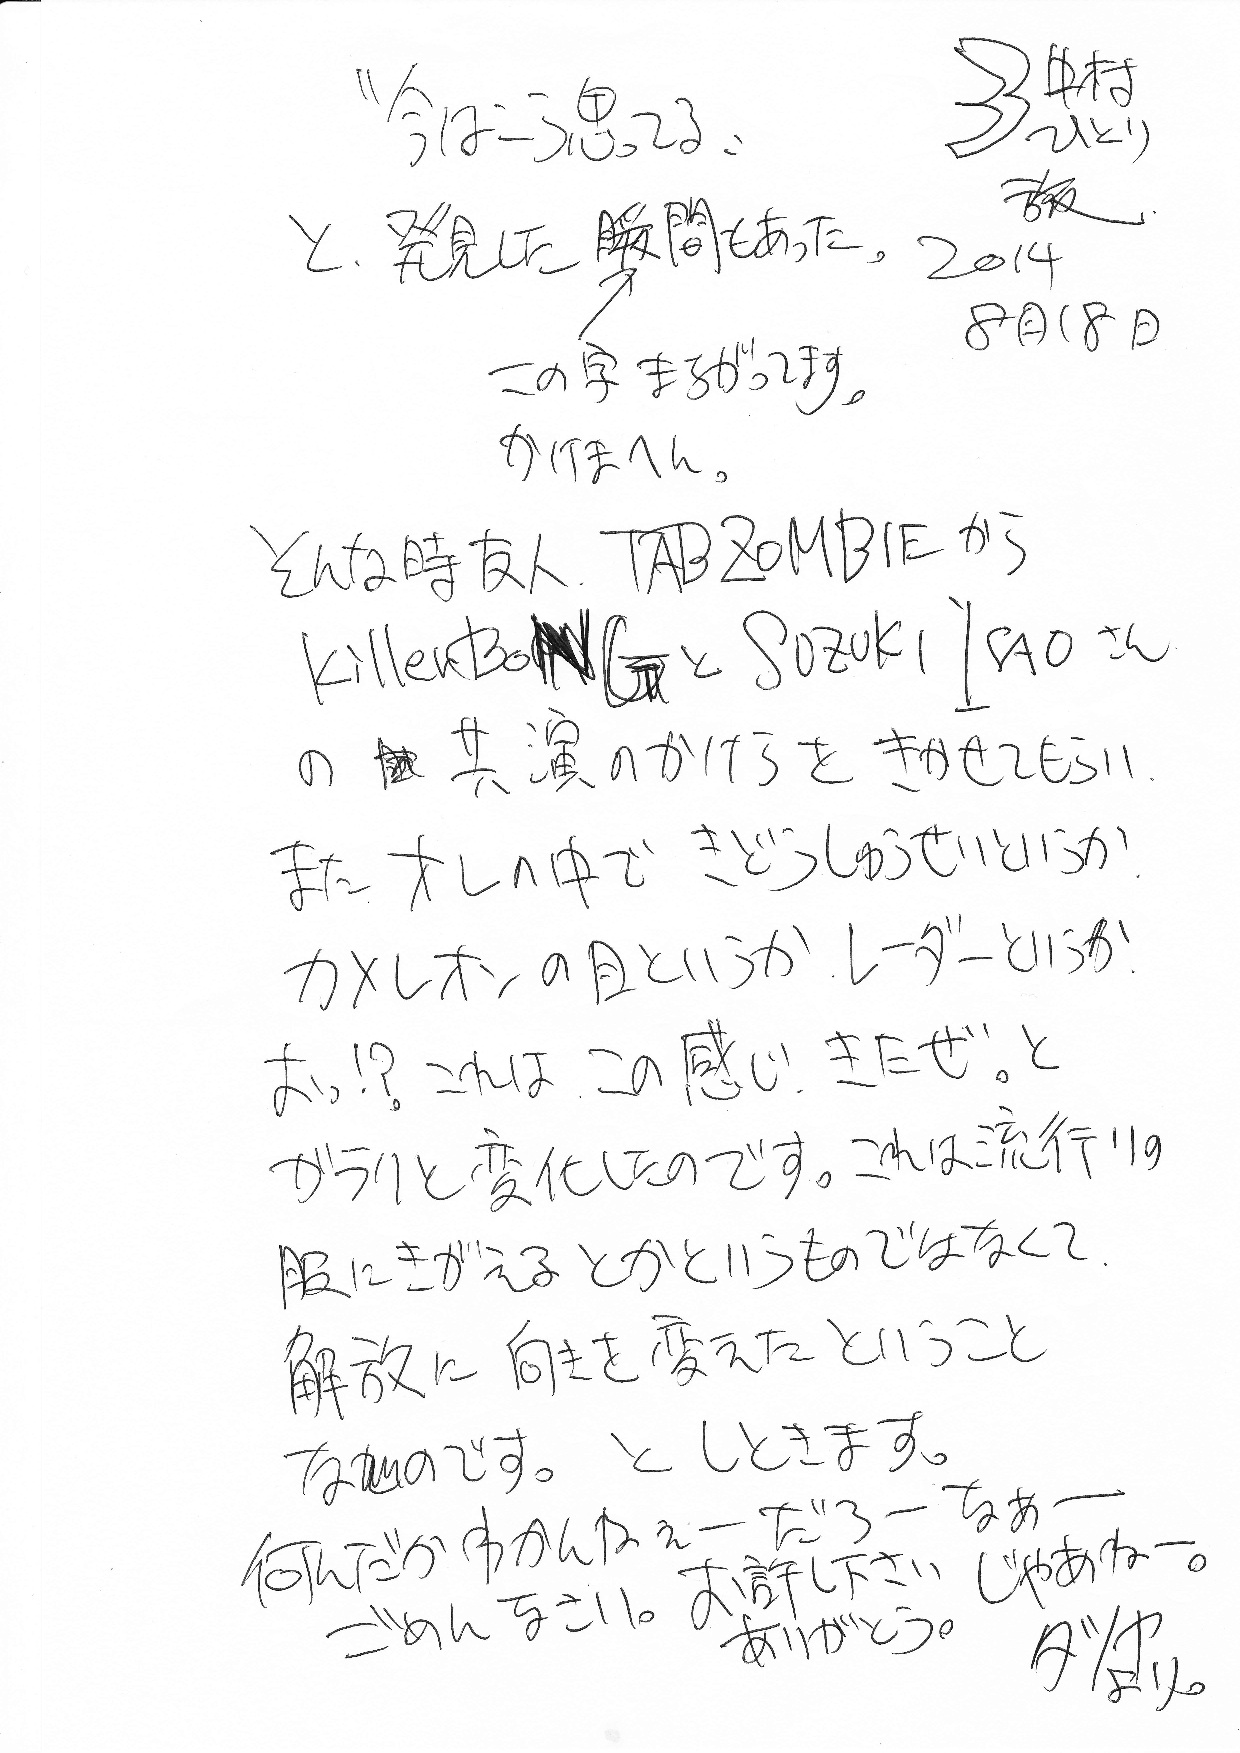 中村
ひとり
旅
2014
8月18日
"今はこう思ってる"
と、発見した瞬間もあった。
この字まちがってます。
かけまへん。
そんな時友人、TABZOMBIEから
KillerBONGとSUZUKI ISAOさん
の共演のかけらをきかせてもらい、
また、オレの中できどうしゅうせいというか、
カメレオンの目というか、レーダーというか、
おっ!?これは、この感じ、きたぜ。と
ガラリと変化したのです。これは流行りの
服にきがえるとかというものではなくて、
解放に向きを変えたということ
なのです。としときます。
何んだかわかんねぇーだろーなぁー
ごめんなさい。お許し下さい じゃあねー。
ありがとう。
より。